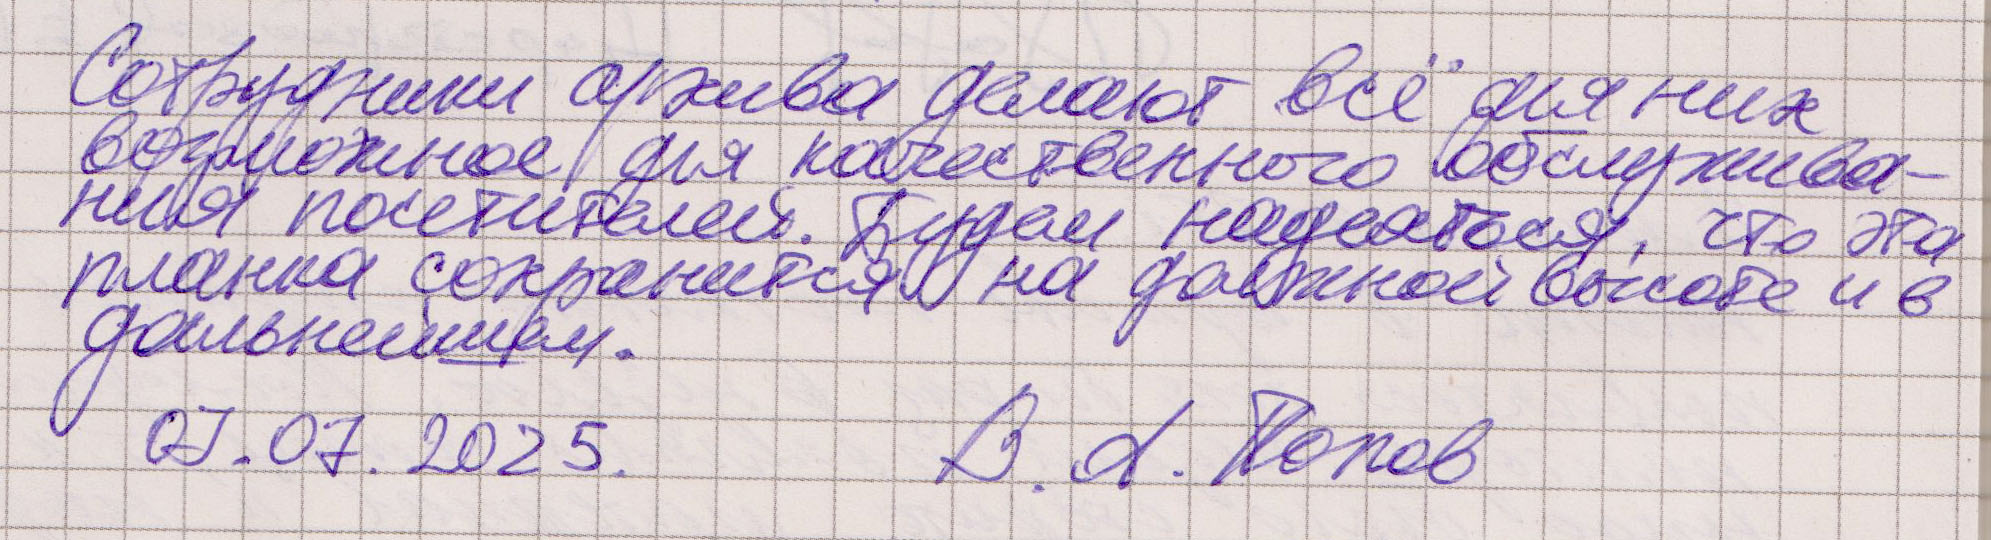 Сотрудники архива делают всё для них
возможное для качественного обслужива-
ния посетителей. Будем надеяться, что эта
планка сохранится на должной высоте и в
дальнейшем.
07.07.2025. В. А. Попов